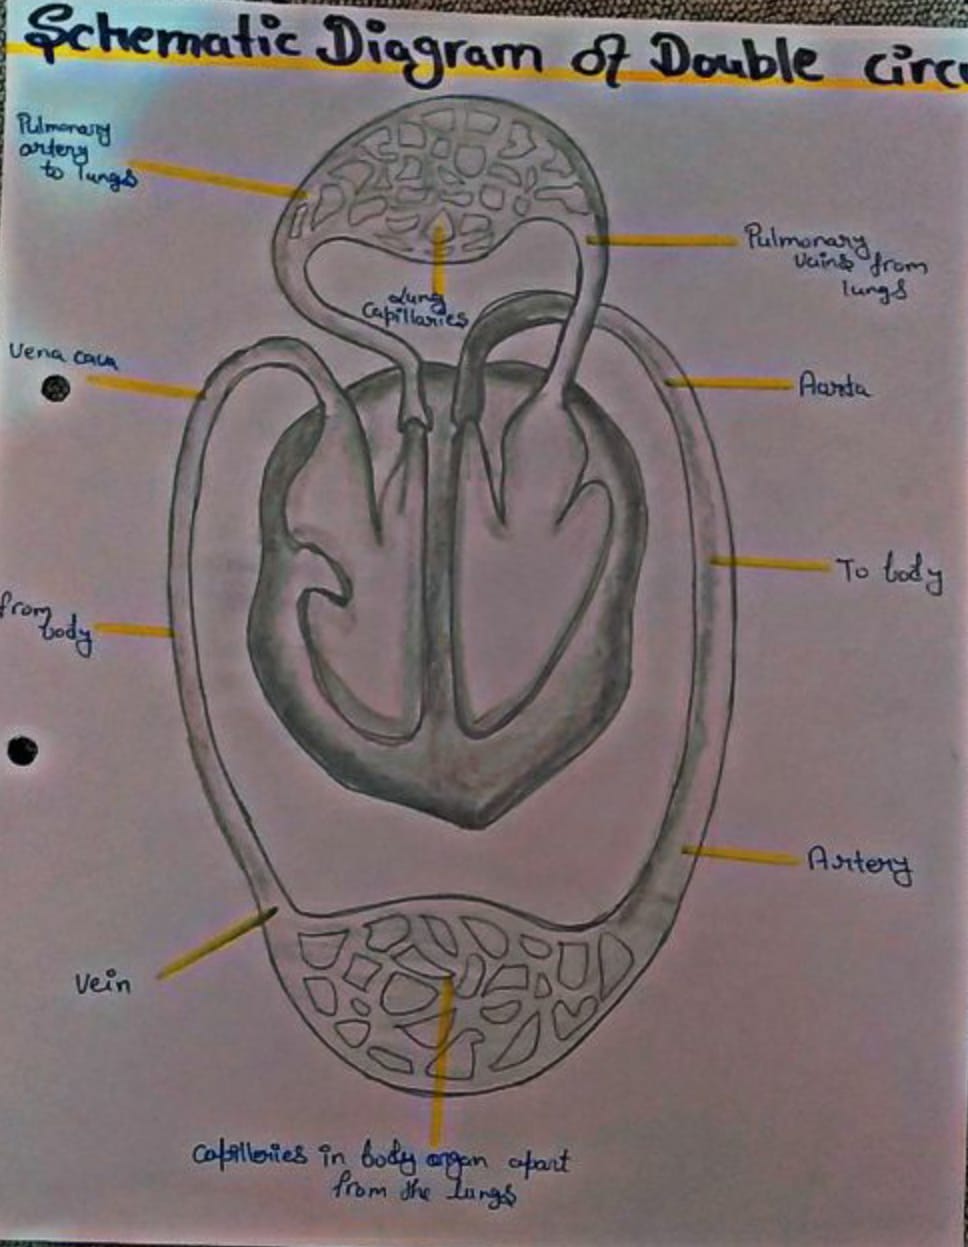 Schematic Diagram of Double circu
Pulmonary
artery
to lungs
Pulmonary
vains from
lungs
Lung
Capillaries
Vena cava
Aarta
To body
from
body
Artery
Vein
Capilleries in body organ apart
from the lungs